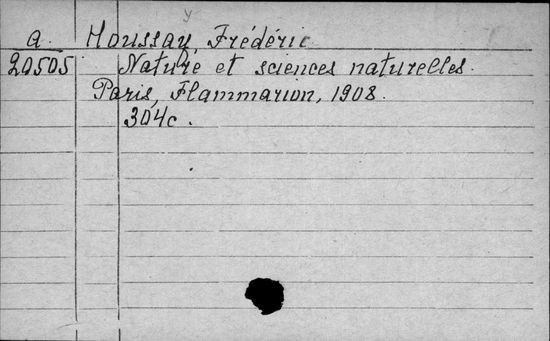 a Houssay, Frédéric
20505 Nature et sciences naturelles.
Paris, Flammarion, 1908.
304c.